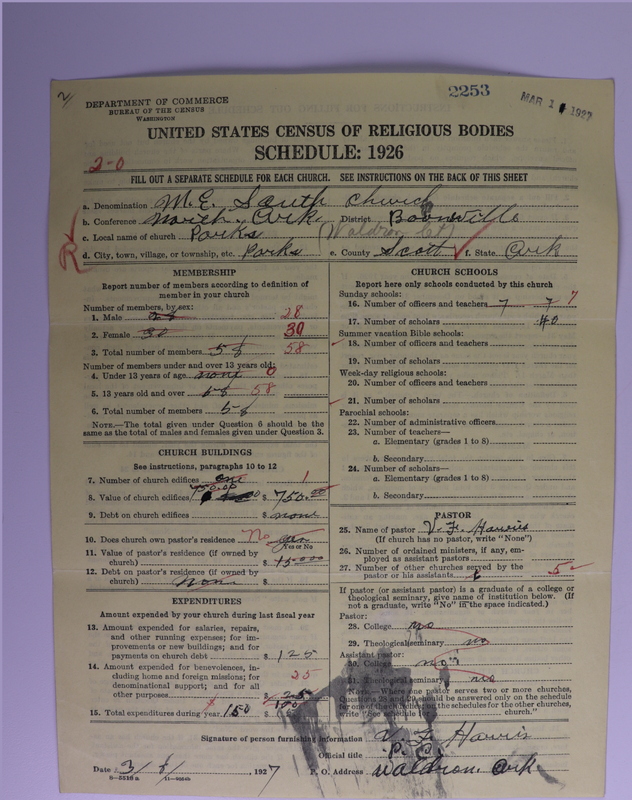 2253
MAR 1 1927
DEPARTMENT OF COMMERCE
BUREAU OF THE CENSUS
WASHINGTON
UNITED STATES CENSUS OF RELIGIOUS BODIES
SCHEDULE: 1926
2-0
FILL OUT A SEPARATE SCHEDULE FOR EACH CHURCH. SEE INSTRUCTIONS ON THE BACK OF THIS SHEET
a. Denomination M. E. South Church
b. Conference North Ark District Boonville
c. Local name of church Parks (Waldron Ct)
d. City, town, village, or township, etc. Parks e. County Scott f. State Ark
MEMBERSHIP
Report number of members according to definition of
member in your church
Number of members, by sex:
1. Male 28 28
2. Female 30 30
3. Total number of members 58 58
Number of members under and over 13 years old:
4. Under 13 years of age none 0
5. 13 years old and over 58 58
6. Total number of members 58
NOTE.—The total given under Question 6 should be
same as the total of males and females given under Question 3.
CHURCH BUILDINGS
See instructions, paragraphs 10 to 12
7. Number of church edifices one 1
8. Value of church edifices 750.00 $ 750.00
9. Debt on church edifices $ none
10. Does church own pastor's residence No yes
Yes or No
11. Value of pastor's residence (if owned by
church) $
12. Debt on pastor's residence (if owned by
church) none $
EXPENDITURES
Amount expended by your church during last fiscal year
13. Amount expended for salaries, repairs,
and other running expenses; for im-
provements or new buildings; and for
payments on church debt $ 125
14. Amount expended for benevolences, in-
cluding home and foreign missions; for
denominational support; and for all
other purposes $ 25
25
15. Total expenditures during year 150 $ 100
CHURCH SCHOOLS
Report here only schools conducted by this church
Sunday schools:
16. Number of officers and teachers 7 7
17. Number of scholars 40
Summer vacation Bible schools:
18. Number of officers and teachers
19. Number of scholars
Week-day religious schools:
20. Number of officers and teachers
21. Number of scholars
Parochial schools:
22. Number of administrative officers
23. Number of teachers—
a. Elementary (grades 1 to 8)
b. Secondary
24. Number of scholars—
a. Elementary (grades 1 to 8)
b. Secondary
PASTOR
25. Name of pastor V. F. Harris
(If church has no pastor, write "None")
26. Number of ordained ministers, if any, em-
ployed as assistant pastors
27. Number of other churches served by the
pastor or his assistants 5
If pastor (or assistant pastor) is a graduate of a college or
theological seminary, give name of institution below. (If
not a graduate, write "No" in the space indicated.)
Pastor:
28. College no
29. Theological seminary no
Assistant pastor:
30. College no
31. Theological seminary no
NOTE.—Where one pastor serves two or more churches,
Questions 28 and 29 should be answered only on the schedule
for one of the churches; on the schedules for the other churches,
write "See schedule church."
Signature of person furnishing information V. F. Harris
Official title P. C.
Date 3/8/, 1927 P. O. Address Waldron, Ark.